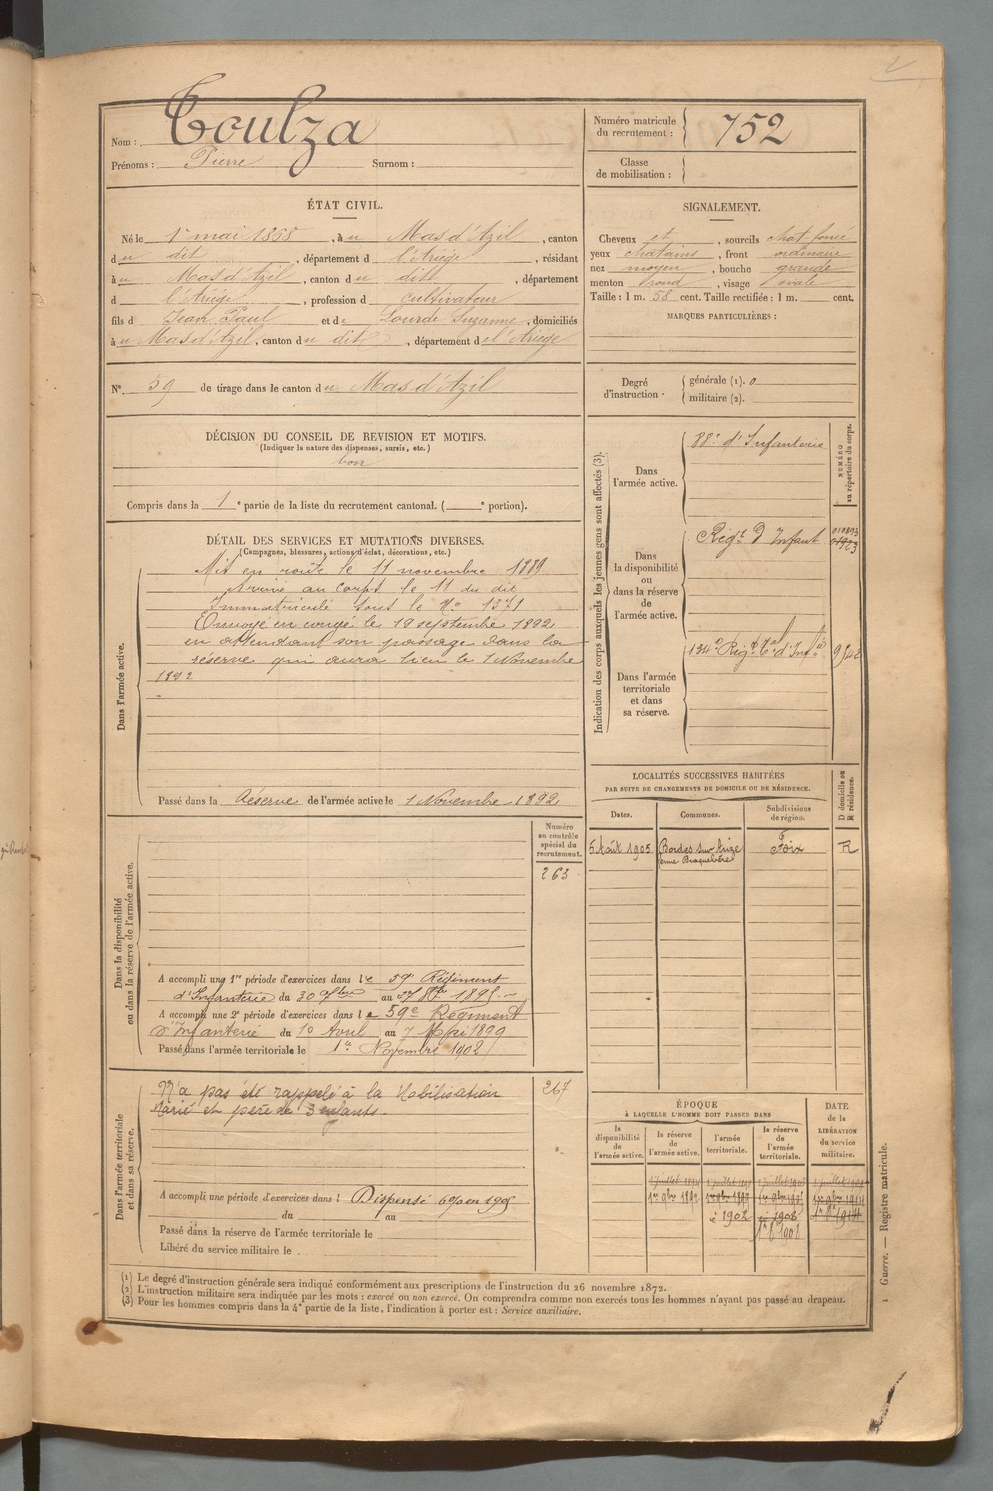 Nom : Toulza
Prénoms : Pierre Surnom :
Numéro matricule du recrutement : 752
Classe de mobilisation :
ÉTAT CIVIL.
Né le 1er mai 1868, à u Mas d'Azil, canton
d u dit, département d l'Ariège, résidant
à u Mas d'Azil, canton d u dit, département
d l'Ariège, profession d cultivateur
fils d Jean Paul et de Lourde Suzanne, domiciliés
à u Mas d'Azil, canton d u dit, département d e l'Ariège
N° 59 de tirage dans le canton d u Mas d'Azil
SIGNALEMENT.
Cheveux et, sourcils chat. foncé
yeux chatains, front ordinaire
nez moyen, bouche grande
menton rond, visage ovale
Taille : 1 m. 58 cent. Taille rectifiée : 1 m. cent.
MARQUES PARTICULIÈRES :
Degré d'instruction. générale (1). 0
militaire (2).
DÉCISION DU CONSEIL DE REVISION ET MOTIFS.
(Indiquer la nature des dispenses, sursis, etc.)
bon
Compris dans la 1e partie de la liste du recrutement cantonal. ( e portion).
DÉTAIL DES SERVICES ET MUTATIONS DIVERSES.
(Campagnes, blessures, actions d'éclat, décorations, etc.)
Dans l'armée active.
Mis en route le 11 novembre 1889
Arrivé au corps le 11 du dit
Immatriculé sous le No 1371
Envoyé en congé le 19 septembre 1892
en attendant son passage dans la
réserve qui aura lieu le 1 Novembre
1892
Passé dans la Réserve de l'armée active le 1 Novembre 1892
Indication des corps auxquels les jeunes gens sont affectés (3).
NUMÉRO au répertoire du corps.
Dans l'armée active.
88e d'Infanterie
Dans la disponibilité ou dans la réserve de l'armée active.
Régt d'Infant
Dans l'armée territoriale et dans sa réserve.
134e Régt Tal d'Infie
LOCALITÉS SUCCESSIVES HABITÉES
PAR SUITE DE CHANGEMENTS DE DOMICILE OU DE RÉSIDENCE.
D domicile ou R résidence.
Dates. Communes. Subdivisions de région.
5 Août 1905 Bordes sur Arize Foix R
Dans la disponibilité ou dans la réserve de l'armée active.
Numéro au contrôle spécial du recrutement.
263
A accompli une 1re période d'exercices dans l e 59e Régiment
d'Infanterie du 30 7bre au 27 8bre 1895
A accompli une 2e période d'exercices dans l e 59e Régiment
d'Infanterie du 10 Avril au 7 Mai 1899
Passé dans l'armée territoriale le 1er Novembre 1902
Dans l'armée territoriale et dans sa réserve.
N'a pas été rappelé à la Mobilisation
Marié et père de 3 enfants
267
A accompli une période d'exercices dans l Dispensé en 1905
du au
Passé dans la réserve de l'armée territoriale le
Libéré du service militaire le
ÉPOQUE
À LAQUELLE L'HOMME DOIT PASSER DANS
DATE de la LIBÉRATION du service militaire.
la disponibilité de l'armée active.
la réserve de l'armée active.
l'armée territoriale.
la réserve de l'armée territoriale.
1er 9bre 1892
à 1902
1908
(1) Le degré d'instruction générale sera indiqué conformément aux prescriptions de l'instruction du 26 novembre 1872.
(2) L'instruction militaire sera indiquée par les mots : exercé ou non exercé. On comprendra comme non exercés tous les hommes n'ayant pas passé au drapeau.
(3) Pour les hommes compris dans la 4e partie de la liste, l'indication à porter est : Service auxiliaire.
Guerre. — Registre matricule.